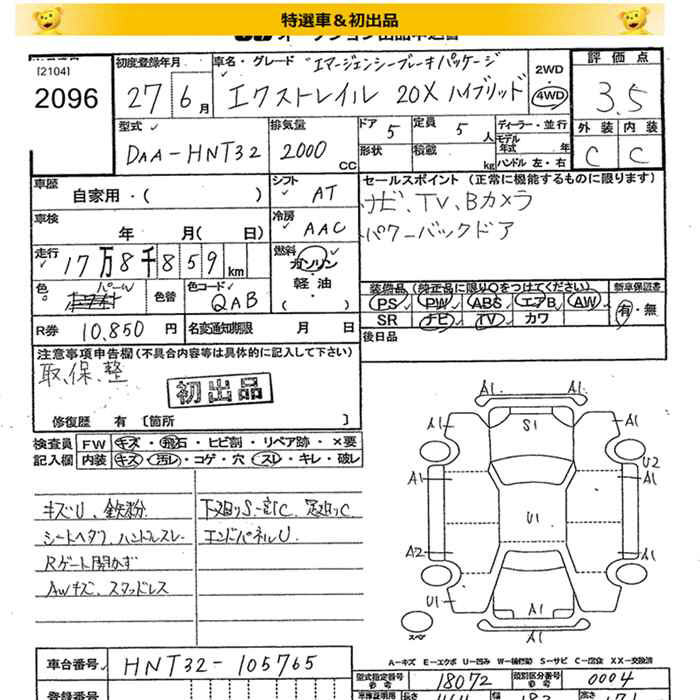 特選車＆初出品
[2104]
2096
初度登録年月
27 6月
車名・グレード エマージェンシーブレーキパッケージ
エクストレイル 20X ハイブリッド
2WD
4WD
評価点
3.5
外装 内装
C C
型式
DAA-HNT32
排気量
2000 CC
ドア 5
定員 5 人
ディーラー・並行
モデル年式 年
形状
積載 kg
ハンドル 左・右
車歴
自家用・( )
シフト
AT
セールスポイント (正常に機能するものに限ります)
ナビ、TV、Bカメラ
パワーバックドア
車検
年 月( 日)
冷房
AAC
走行
17万8千859km
燃料
ガソリン
軽油
・( )
色
パール
色替
色コード
QAB
装備品 (純正品に限り○をつけてください)
PS PW ABS エアB AW
SR ナビ TV カワ
新車保証書
有・無
R券 10,850 円
名変通知期限 月 日
後日品
注意事項申告欄 (不具合内容等は具体的に記入して下さい)
取、保、整
初出品
修復歴 有 [箇所 ]
検査員 FW キズ・飛石・ヒビ割・リペア跡・×要
記入欄 内装 キズ・汚レ・コゲ・穴・スレ・キレ・破レ
キズU、鉄粉
シートヘタリ、ハンドルスレ
Rゲート開かず
AWキズ、スタッドレス
下廻りS一部C、足廻りC
エンドパネルU
A1 A1
A1 S1 A1
U2
A1 A1
U1
A2 A1
U1 A1
A1
スペア
A－キズ E－エクボ U－凹み W－補修跡 S－サビ C－腐食 XX－交換済
車台番号 HNT32-105765
型式指定番号 18072
類別区分番号 0004
登録番号
長さ